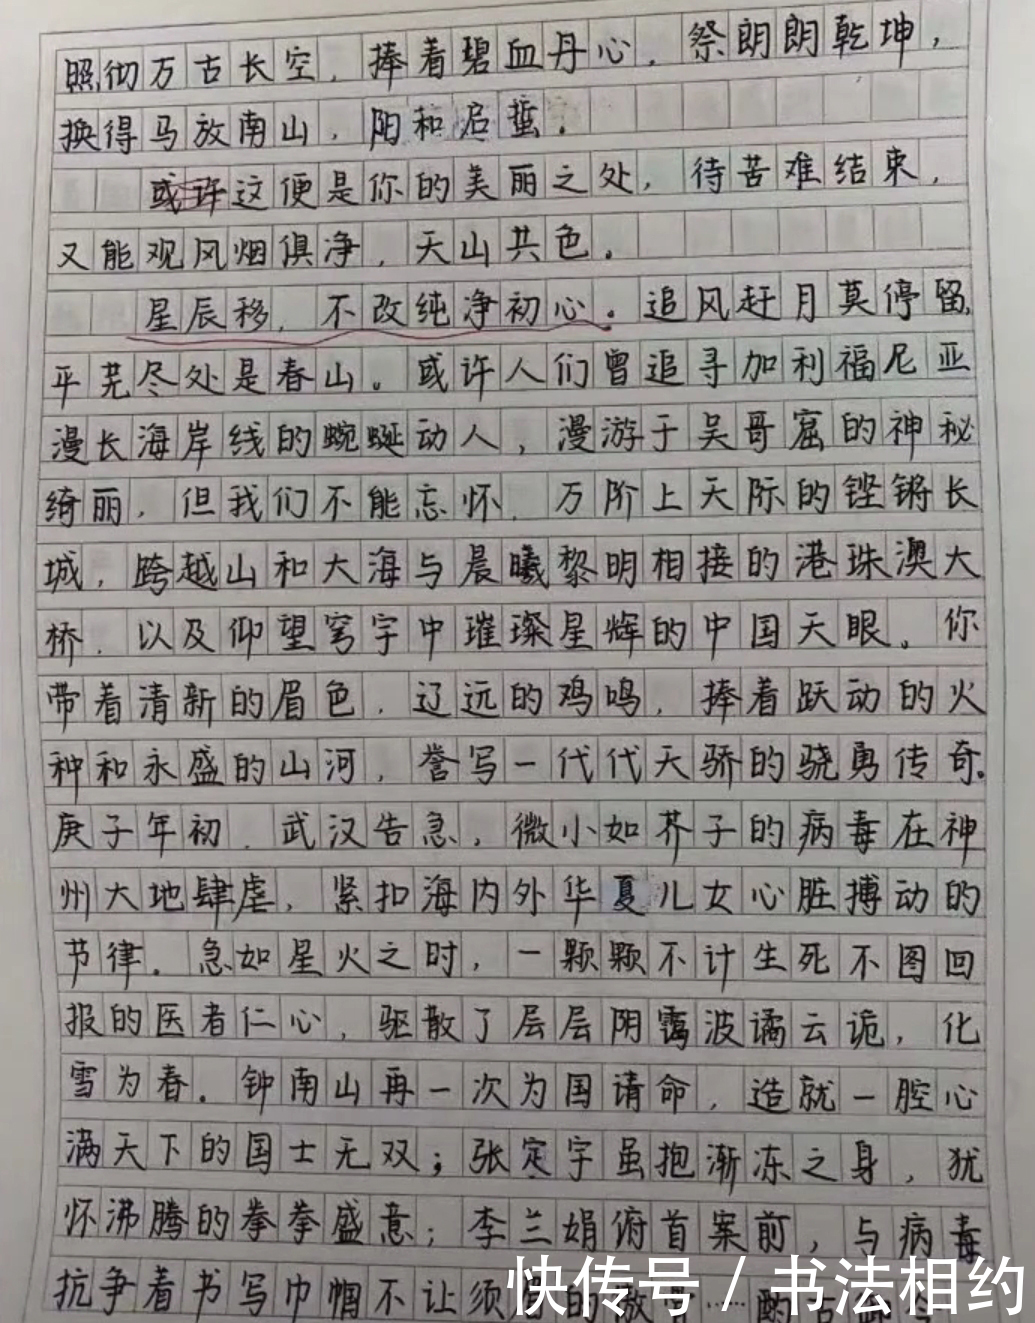 照彻万古长空，捧着碧血丹心，祭朗朗乾坤，
换得马放南山，阳和启蛰。
或许这便是你的美丽之处，待苦难结束，
又能观风烟俱净，天山共色。
星辰移，不改纯净初心。追风赶月莫停留，
平芜尽处是春山。或许人们曾追寻加利福尼亚
漫长海岸线的蜿蜒动人，漫游于吴哥窟的神秘
绮丽，但我们不能忘怀，万阶上天际的铿锵长
城，跨越山和大海与晨曦黎明相接的港珠澳大
桥，以及仰望穹宇中璀璨星辉的中国天眼。你
带着清新的眉色，辽远的鸡鸣，捧着跃动的火
种和永盛的山河，誊写一代代天骄的骁勇传奇。
庚子年初，武汉告急，微小如芥子的病毒在神
州大地肆虐，紧扣海内外华夏儿女心脏搏动的
节律。急如星火之时，一颗颗不计生死不图回
报的医者仁心，驱散了层层阴霭波谲云诡，化
雪为春。钟南山再一次为国请命，造就一腔心
满天下的国士无双；张定宇虽抱渐冻之身，犹
怀沸腾的拳拳盛意；李兰娟俯首案前，与病毒
抗争着书写巾帼不让须眉的
快传号／书法相约